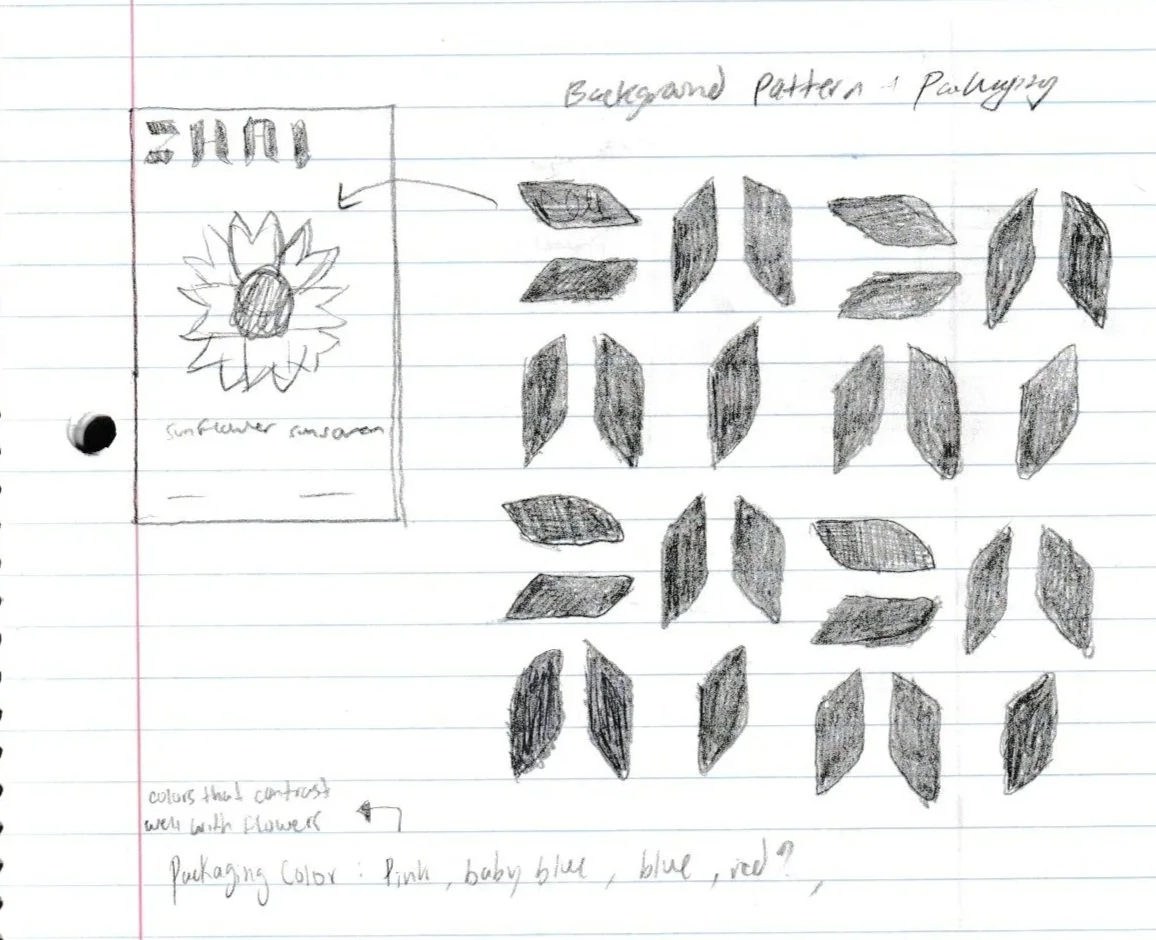 Background Pattern + Packaging
ZHAI
sunflower sunscreen
colors that contrast
well with flowers
Packaging Color : Pink , baby blue , blue , red ? ,